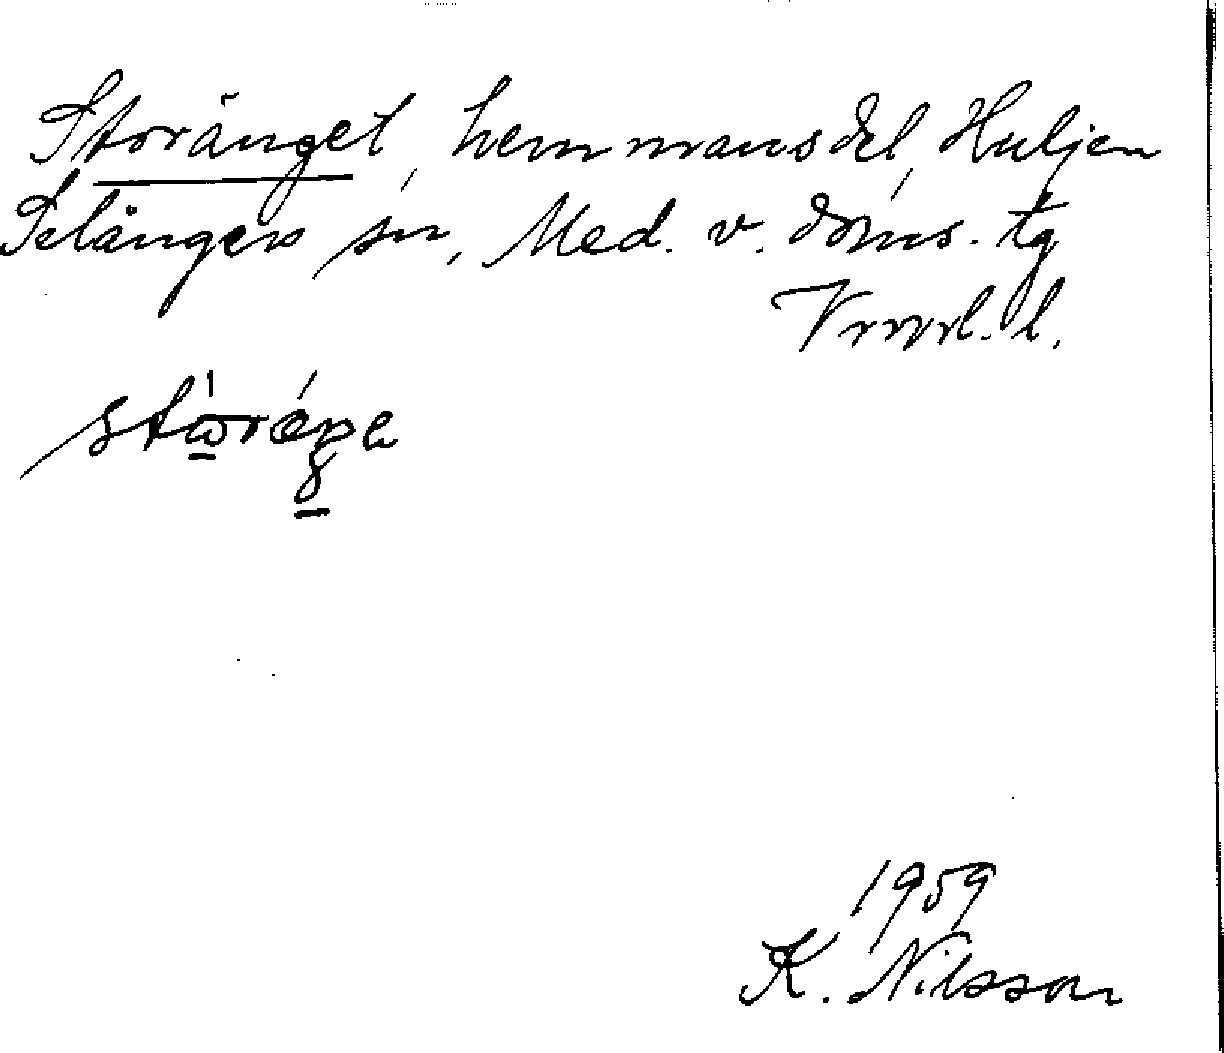 Storänget, hemmansdel, Huljen
Selångers sn, Med. v. doms. tg
Vnrl. l.
1959
K. Nilsson